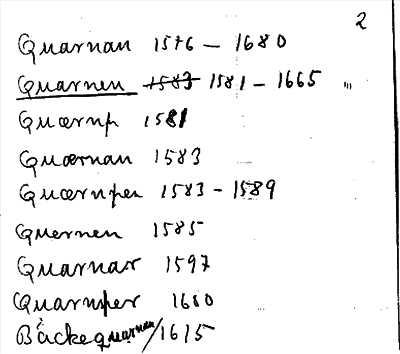 2
Quarnan 1576 – 1680
Quarnen 1583 1581 – 1665 "
Quærnp 1581
Quærnan 1583
Quærnpen 1583 – 1589
Quernen 1585
Quarnar 1597
Quarnper 1680
Bäckequarnan/1615